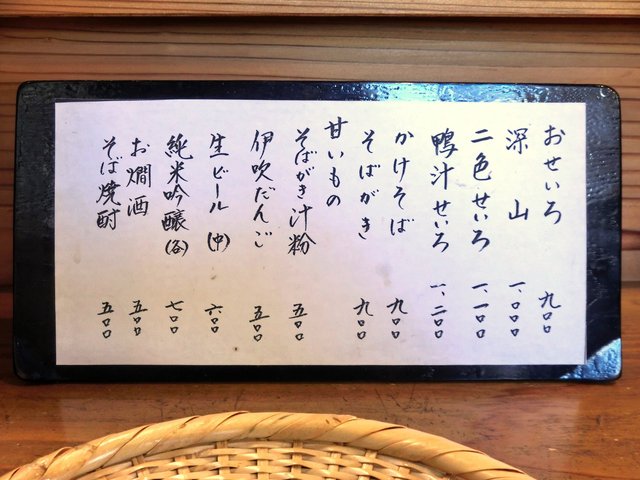 おせいろ 九〇〇
深山 一、〇〇〇
二色せいろ 一、一〇〇
鴨汁せいろ 一、二〇〇
かけそば 九〇〇
そばがき 九〇〇
甘いもの
そばがき汁粉 五〇〇
伊吹だんご 五〇〇
生ビール(中) 六〇〇
純米吟醸(各) 七〇〇
お燗酒 五〇〇
そば焼酎 五〇〇